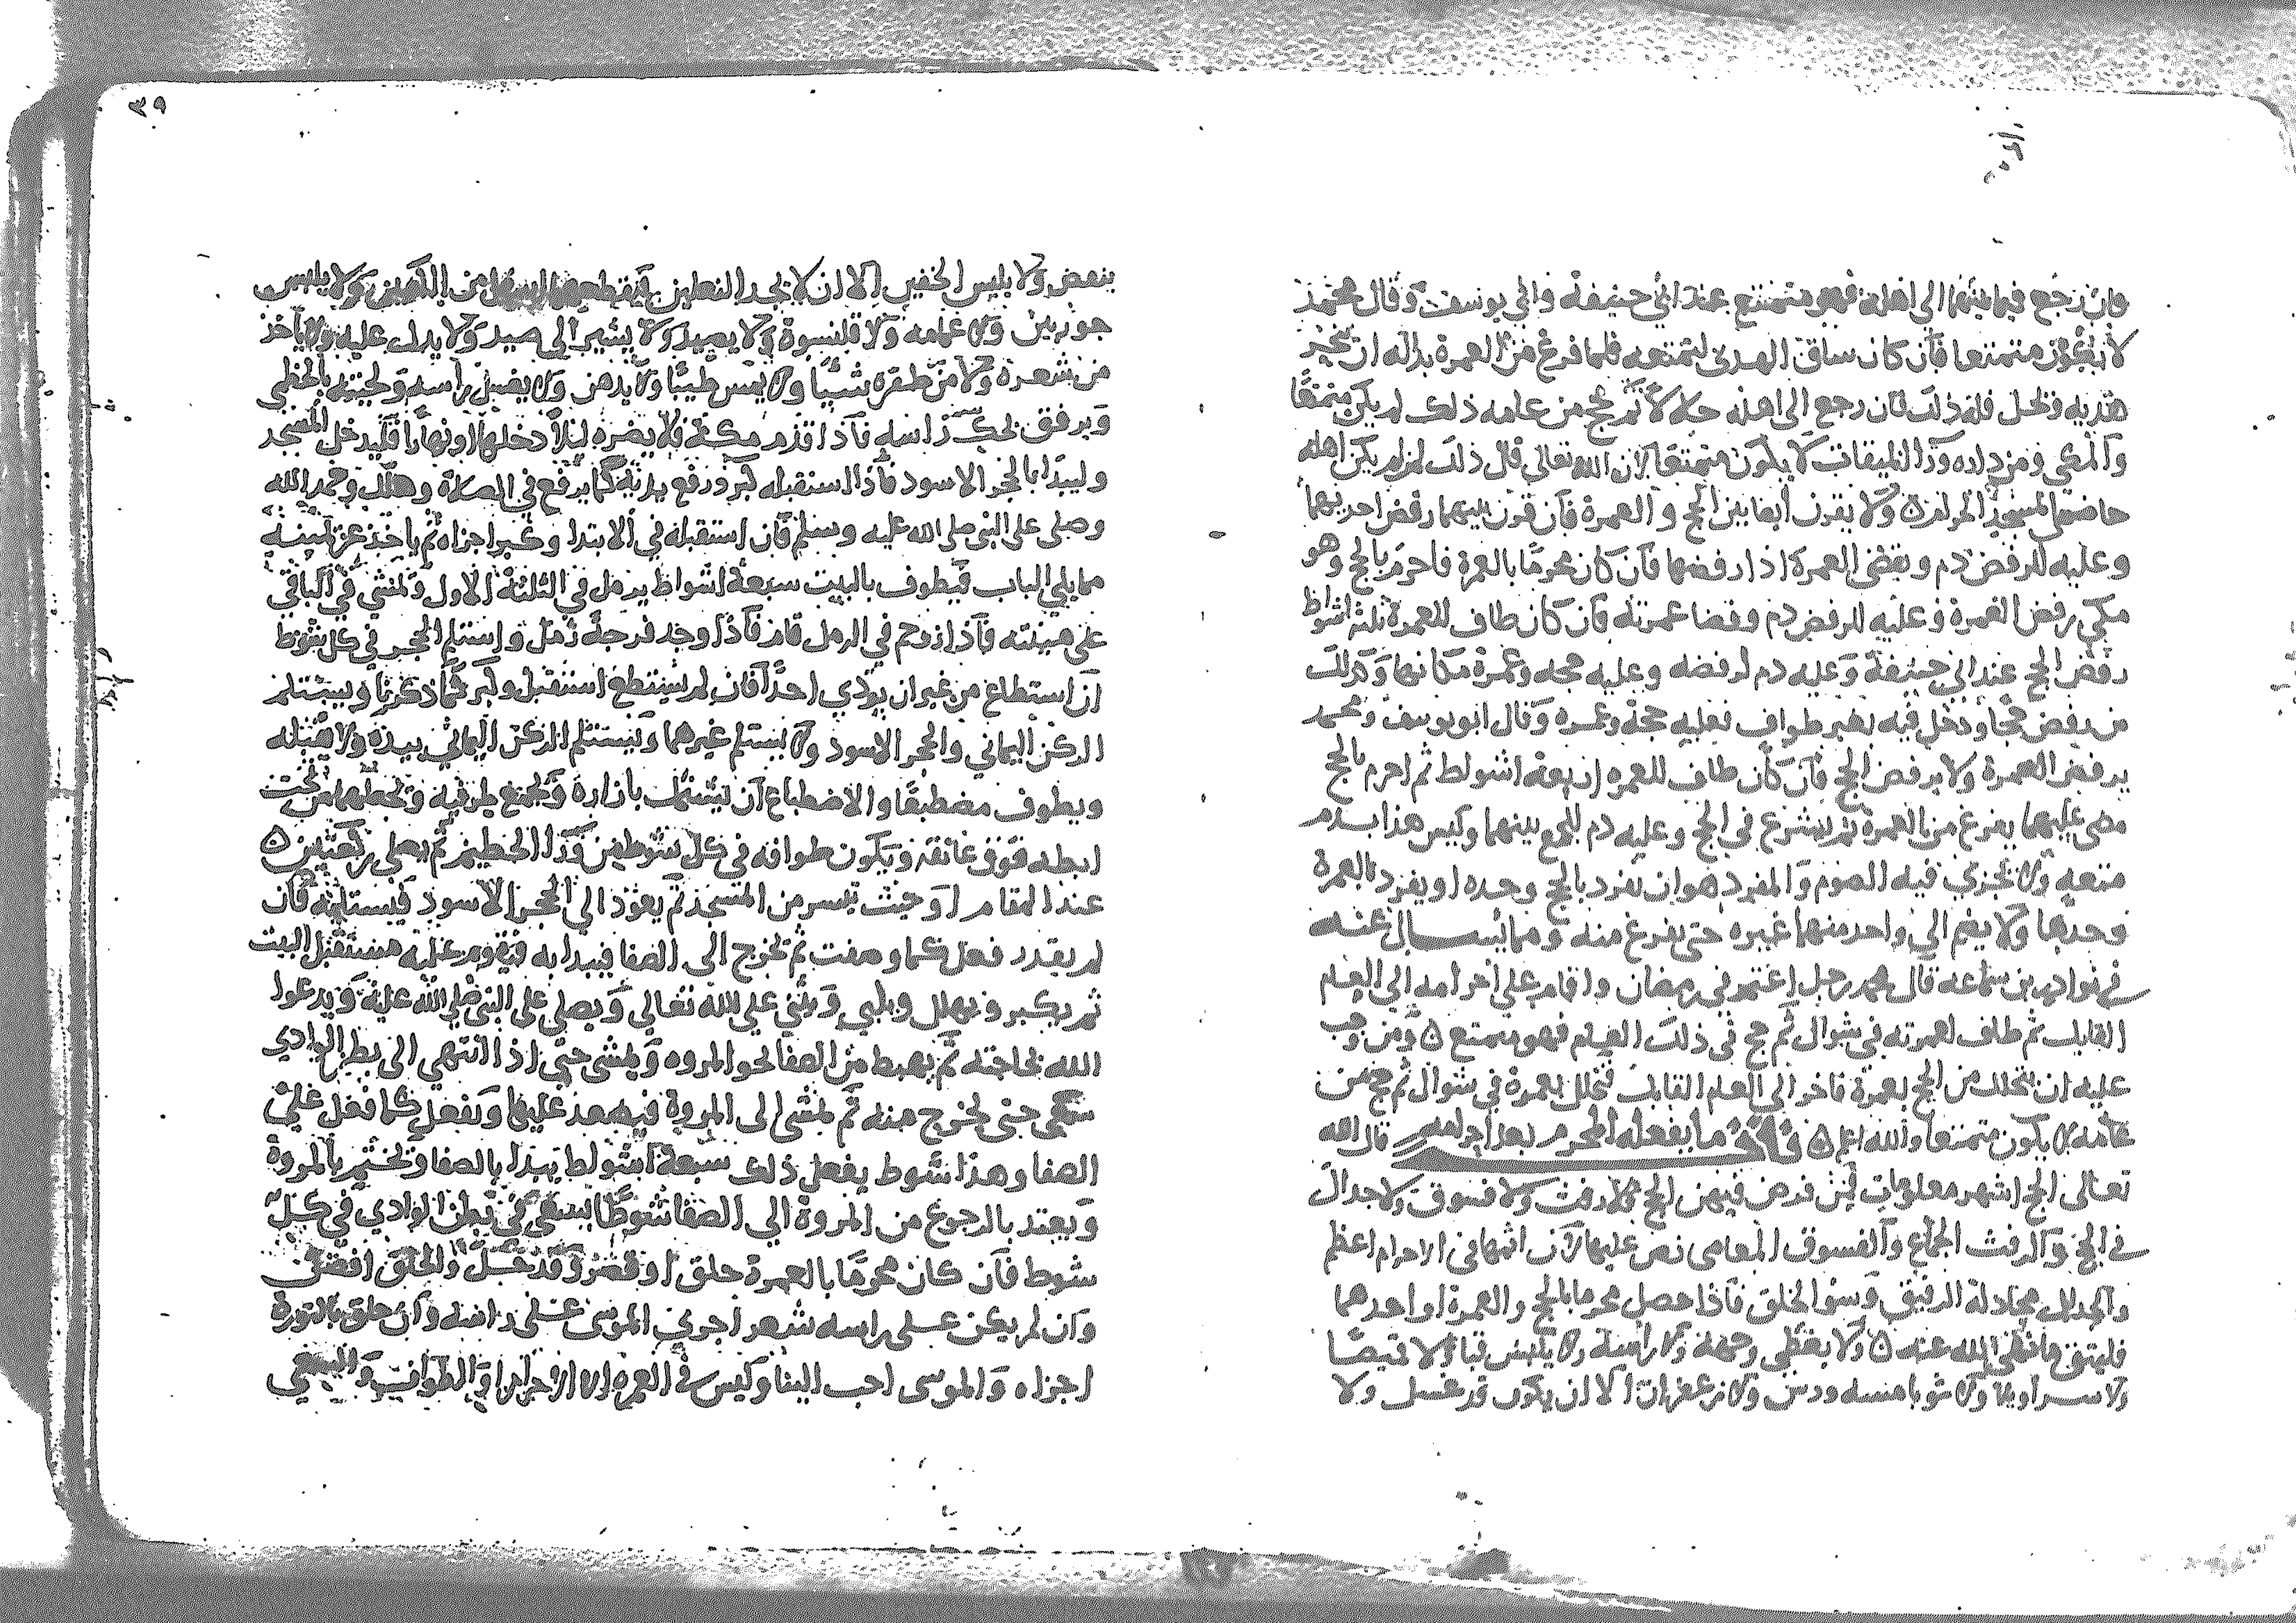 وان رجع فيما بينهما الى اهله فهو متمتع عند ابي حنيفة وابي يوسف وقال محمد
لا يكون متمتعا فان كان ساق الهدى لتمتعه فلما فرغ من العمرة بدا له ان ينحر
هديه ويحل فله ذلك فان رجع الى اهله حلالا ثم حج من عامه ذلك لم يكن متمتعا
والمكي ومن داره وراء الميقات لا يكون متمتعا لان الله تعالى قال ذلك لمن لم يكن اهله
حاضري المسجد الحرام ولا يقرن ايضا بين الحج و العمرة فان قرن بينهما رفض احديهما
وعليه للرفض دم ويقضى العمرة اذا رفضها فان كان محرما بالعمرة فاحرم بالحج وهو
مكي رفض العمرة وعليه للرفض دم وقضا عمرته فان كان طاف للعمرة ثلثة اشواط
رفض الحج عند ابي حنيفة وعليه دم لرفضه وعليه حجه وعمرة مكانها وكذلك
من رفض حجا ودخل فيه بغير طواف فعليه حجة وعمره وقال ابو يوسف ومحمد
يرفض العمرة ولا يرفض الحج فان كان طاف للعمره اربعة اشواط ثم احرم بالحج
مضى عليهما يفرغ من العمرة ثم يشرع في الحج وعليه دم للجمع بينهما وليس هذا بدم
متعه ولا يجزي فيه الصوم والمفرد هو ان يفرد بالحج وحده او يفرد بالعمرة
وحدها ولا يضم الى واحد منهما غيره حتى يفرغ منه ومما يسال عنه
في نوادر بن سماعه قال محمد رجل اعتمر في رمضان واقام على احرامه الى العام
القابل ثم طاف لعمرته في شوال ثم حج في ذلك العام فهو متمتع ومن وجب
عليه ان يتحلل من الحج بعمرة فاخر الى العام القابل فتحلل بعمرة في شوال ثم حج من
عامه لا يكون متمتعا والله اعلم ما يفعله المحرم بعد احرامه قال الله
تعالى الحج اشهر معلومات فمن فرض فيهن الحج فلا رفث ولا فسوق ولا جدال
في الحج والرفث الجماع والفسوق المعاصى نص عليها لان اثمها في الاحرام اعظم
والجدال مجادلة الرفيق وسؤ الخلق فاذا حصل محرما بالحج والعمرة او احدهما
فليتق ما نهى الله عنه ولا يغطي وجهه ولا راسه ولا يلبس قبا ولا قميصا
ولا سراويلا ولا ثوبا مسه ورس ولا زعفران الا ان يكون قد غسل ولا
٣٩
ينفض ولا يلبس الخفين الا ان لا يجد النعلين فيقطعهما اسفل من الكعبين ولا يلبس
جوربين ولا عمامه ولا قلنسوة ولا يصيد ولا يشير الى صيد ولا يدل عليه ولا ياخذ
من شعره ولا من ظفره شيئا ولا يمس طيبا ولا يدهن ولا يغسل راسه ولحيته بالخطمي
ويرفق بحك راسه فاذا قدم مكة فلا يضره ليلا دخلها او نهارا فليدخل المسجد
وليبدا بالحجر الاسود فاذا استقبله كبر ورفع يديه كما يرفع في الصلاة وهلل وحمد الله
وصلى على النبي صلى الله عليه وسلم فان استقبله في الابتدا وكبر اجزاه ثم ياخذ عن يمينه
مما يلي الباب فيطوف بالبيت سبعة اشواط يرمل في الثلثة الاول ويمشي في الباقي
على هينته فاذا زوحم في الرمل قام فاذا وجد فرجة رمل واستلم الحجر في كل شوط
ان استطاع من غير ان يؤذي احدا فان لم يستطع استقبل وكبر كما ذكرنا ويستلم
الركن اليماني والحجر الاسود ولا يستلم غيرهما ويستلم الركن اليماني بيده ولا يقبله
ويطوف مضطبعا والاضطباع ان يتشتمل بازاره ويجمع طرفيه ويجعلهما من تحت
ابطه فوق عاتقه ويكون طوافه في كل شوط من ورا الحطيم ثم يصلى ركعتين
عند المقام او حيث تيسر من المسجد ثم يعود الى الحجر الاسود فيستلمه فان
لم يقدر فعل كما وصفت ثم يخرج الى الصفا فيبدا به فيقوم عليه مستقبل البيت
ثم يكبر ويهلل ويلبي ويثني على الله تعالى ويصلى على النبي صلى الله عليه ويدعوا
الله بحاجته ثم يهبط من الصفا نحو المروه ويمشى حتى اذا انتهى الى بطن الوادي
سعى حتى يخرج منه ثم يمشى الى المروة فيصعد عليها ويفعل كما فعل على
الصفا وهذا شوط يفعل ذلك سبعة اشواط يبدا بالصفا ويختم بالمروة
ويعتد بالرجوع من المروة الى الصفا شوطا يسعى في بطن الوادي في كل
شوط فان كان محرما بالعمرة حلق او قصر وقد حل والحلق افضل
وان لم يكن على راسه شعر اجرى الموسى على راسه وان حلق بالنورة
اجزاه والموسى احب الينا وليس في العمره الا الاحرام والطواف والسعي